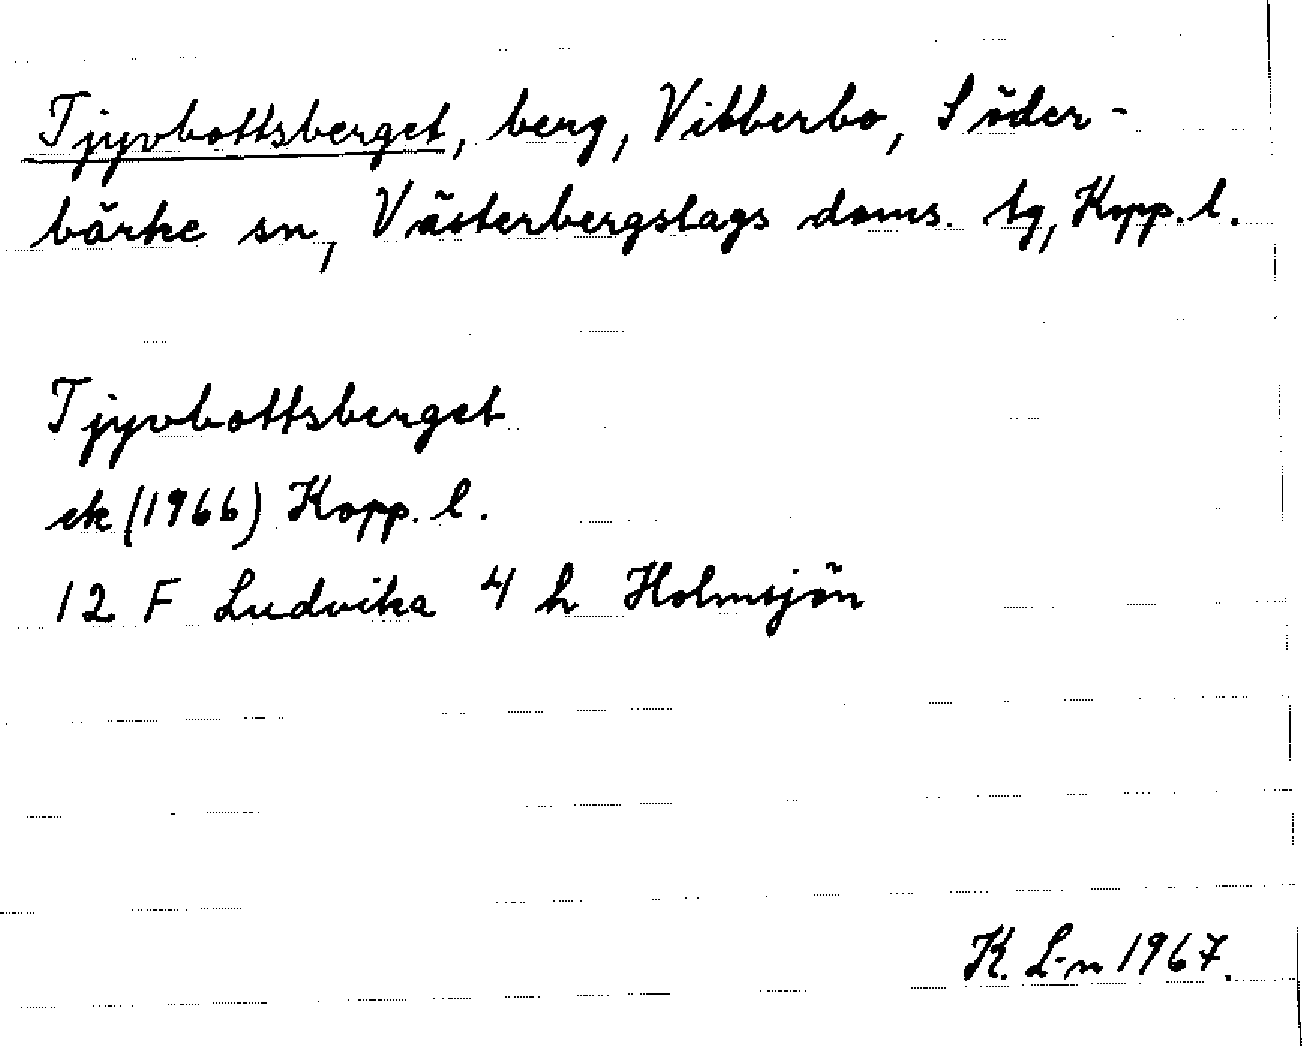 Tjyvbottsberget, berg, Vibberbo, Söder-
bärke sn, Västerbergslags doms. tg, Kopp. l.
Tjyvbottsberget
ek (1966) Kopp. l.
12 F Ludvika 4 h Holmsjön
K. L-n 1967.